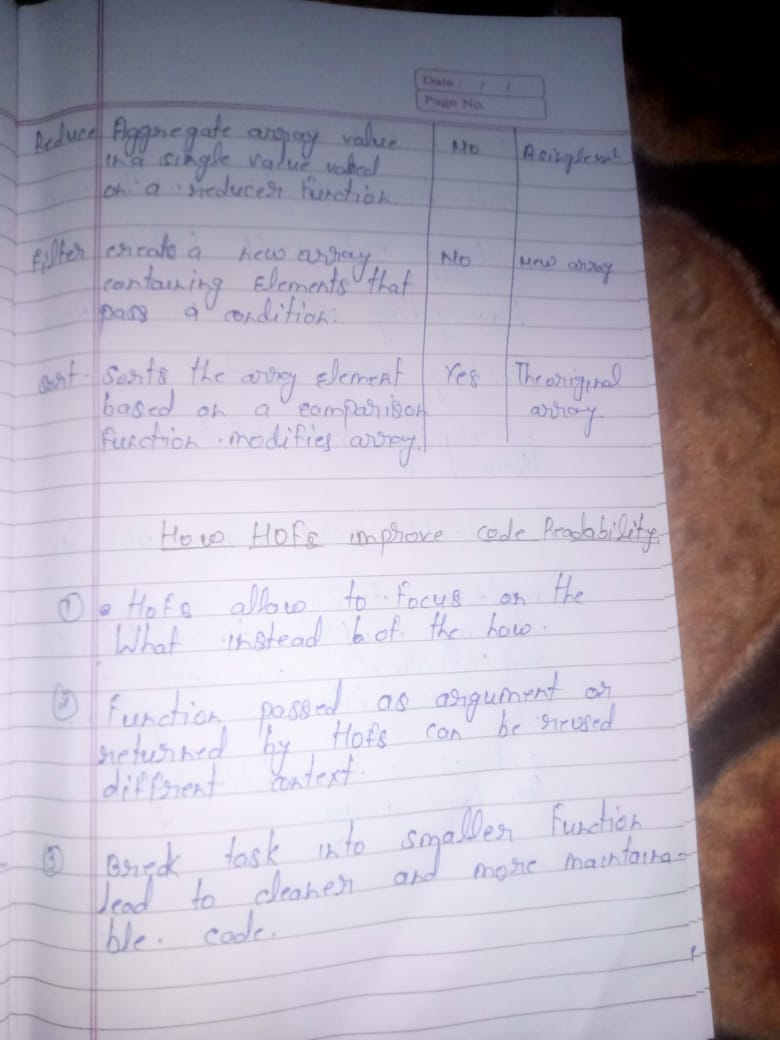 Date : / /
Page No.
Reduce Aggregate array value No A single val
in a single value vabed
on a reducer function.
Filter create a new array No New array
containing Elements that
pass a condition.
Sort Sorts the array Element Yes The original
based on a comparison array.
function . modifies array.
How HOFs improve code Readability.
① HOFs allow to focus on the
What instead of the how.
② Function passed as argument or
returned by HOFs can be reused
diffrent context.
③ Break task into smaller function
lead to cleaner and more maintaina-
ble. code.